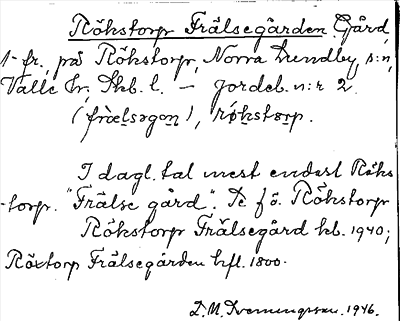 Rökstorp Frälsegården. Gård,
1 fr, på Rökstorp, Norra Lundby, s:n,
Valle hr. Skb. l. — Jordeb. n:r 2.
I dagl. tal mest endast Röks-
torp. "Frälse gård". Se fö. Rökstorp
Rökstorp Frälsegård kb. 1940;
Röxtorp Frälsegården hfl. 1800.
1946.